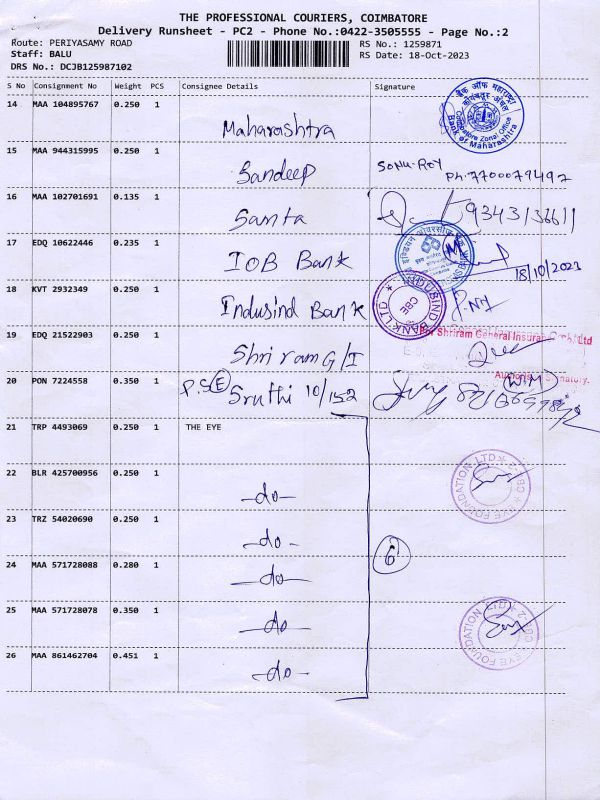 THE PROFESSIONAL COURIERS, COIMBATORE
Delivery Runsheet - PC2 - Phone No.:0422-3505555 - Page No.:2
Route: PERIYASAMY ROAD
Staff: BALU
DRS No.: DCJB125987102
RS No.: 1259871
RS Date: 18-Oct-2023
S No Consignment No Weight PCS Consignee Details Signature
14 MAA 104895767 0.250 1 Maharashtra
बैंक ऑफ महाराष्ट्र
Zonal Office
Bank of Maharashtra
15 MAA 944315995 0.250 1 Sandeep SONU-ROY
Ph.7700079497
16 MAA 102701691 0.135 1 Samta
17 EDQ 10622446 0.235 1 IOB Bank
18/10/2023
18 KVT 2932349 0.250 1 Indusind Bank
INDUSIND BANK LTD
CBE
19 EDQ 21522903 0.250 1 Shriram G/I
For Shriram General Insuran
Authoris Signatory.
20 PON 7224558 0.350 1 P.S(E) Sruthi 10/152
21 TRP 4493069 0.250 1 THE EYE
22 BLR 425700956 0.250 1 -do-
EYE FOUNDATION LTD
23 TRZ 54020690 0.250 1 -do-
6
24 MAA 571728088 0.280 1 -do-
25 MAA 571728078 0.350 1 -do-
EYE FOUNDATION LTD
26 MAA 861462704 0.451 1 -do-